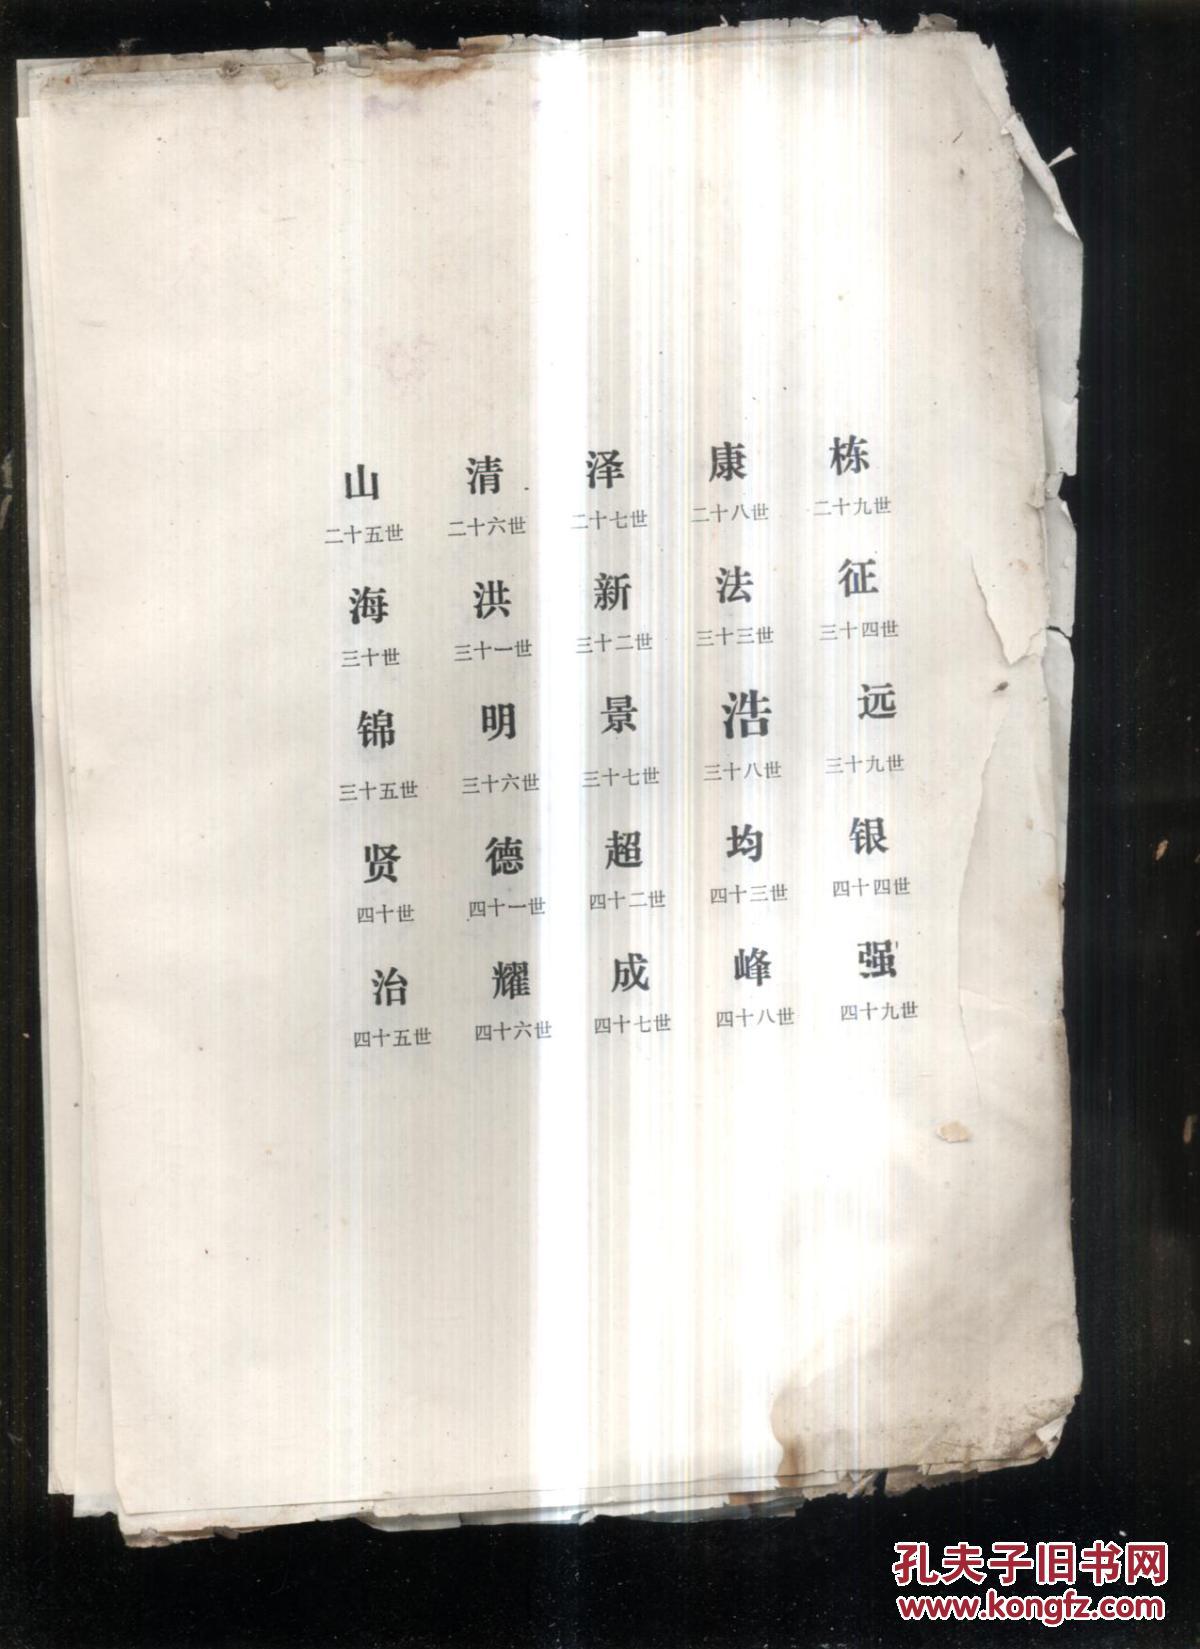 山 清 泽 康 栋
二十五世 二十六世 二十七世 二十八世 二十九世
海 洪 新 法 征
三十世 三十一世 三十二世 三十三世 三十四世
锦 明 景 浩 远
三十五世 三十六世 三十七世 三十八世 三十九世
贤 德 超 均 银
四十世 四十一世 四十二世 四十三世 四十四世
治 耀 成 峰 强
四十五世 四十六世 四十七世 四十八世 四十九世
孔夫子旧书网
www.kongfz.com